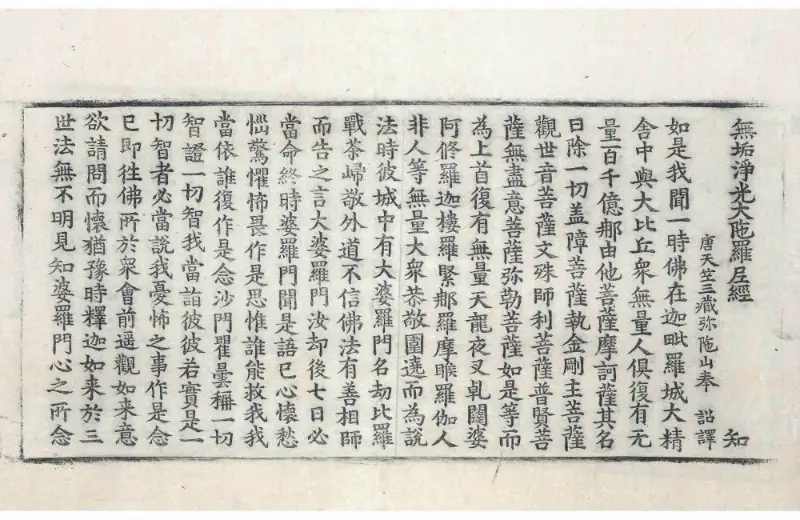 無垢淨光大陁羅尼經 知
唐天竺三藏弥陁山奉 詔譯
如是我聞一時佛在迦毗羅城大精
舍中與大比丘衆無量人俱復有無
量百千億那由他菩薩摩訶薩其名
曰除一切盖障菩薩執金剛主菩薩
觀世音菩薩文殊師利菩薩普賢菩
薩無盡意菩薩弥勒菩薩如是等而
為上首復有無量天龍夜叉乹闥婆
阿修羅迦樓羅緊那羅摩睺羅伽人
非人等無量大衆恭敬圍遶而為說
法時彼城中有大婆羅門名劫比羅
戰荼歸敬外道不信佛法有善相師
而告之言大婆羅門汝却後七日必
當命終時婆羅門聞是語已心懷愁
惱驚懼怖畏作是思惟誰能救我我
當依誰復作是念沙門瞿曇稱一切
智證一切智我當詣彼彼若實是一
切智者必當說我憂怖之事作是念
已即往佛所於衆會前遥觀如来意
欲請問而懷猶豫時釋迦如来於三
世法無不明見知婆羅門心之所念